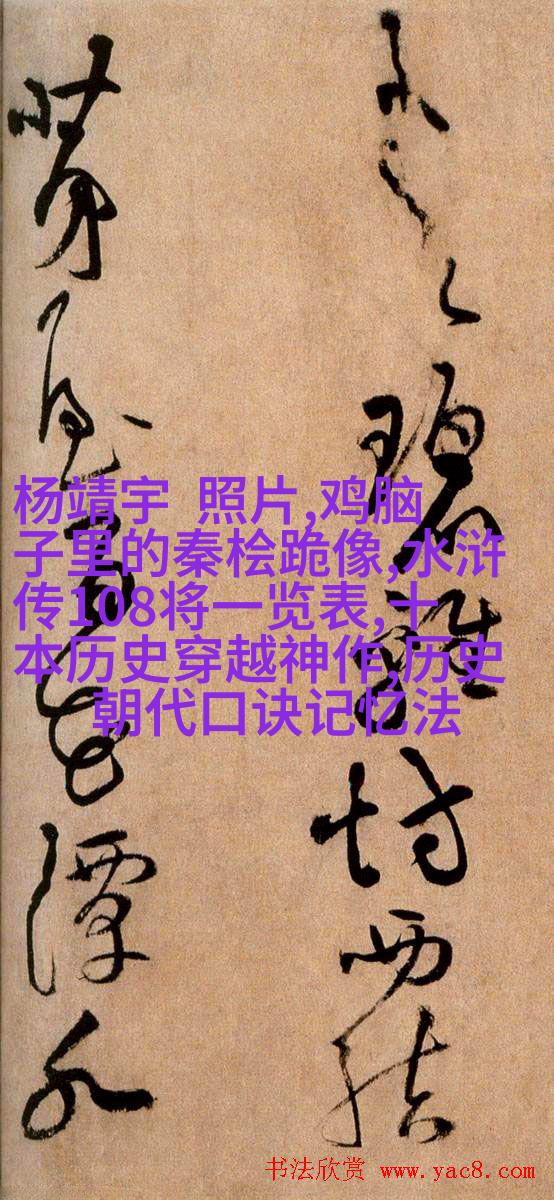 碧雞坊西結
茅屋百花潭水
杨靖宇 照片,鸡脑
子里的秦桧跪像,水浒
传108将一览表,十
本历史穿越神作,历史
朝代口诀记忆法
书法欣赏 www.yac8.com